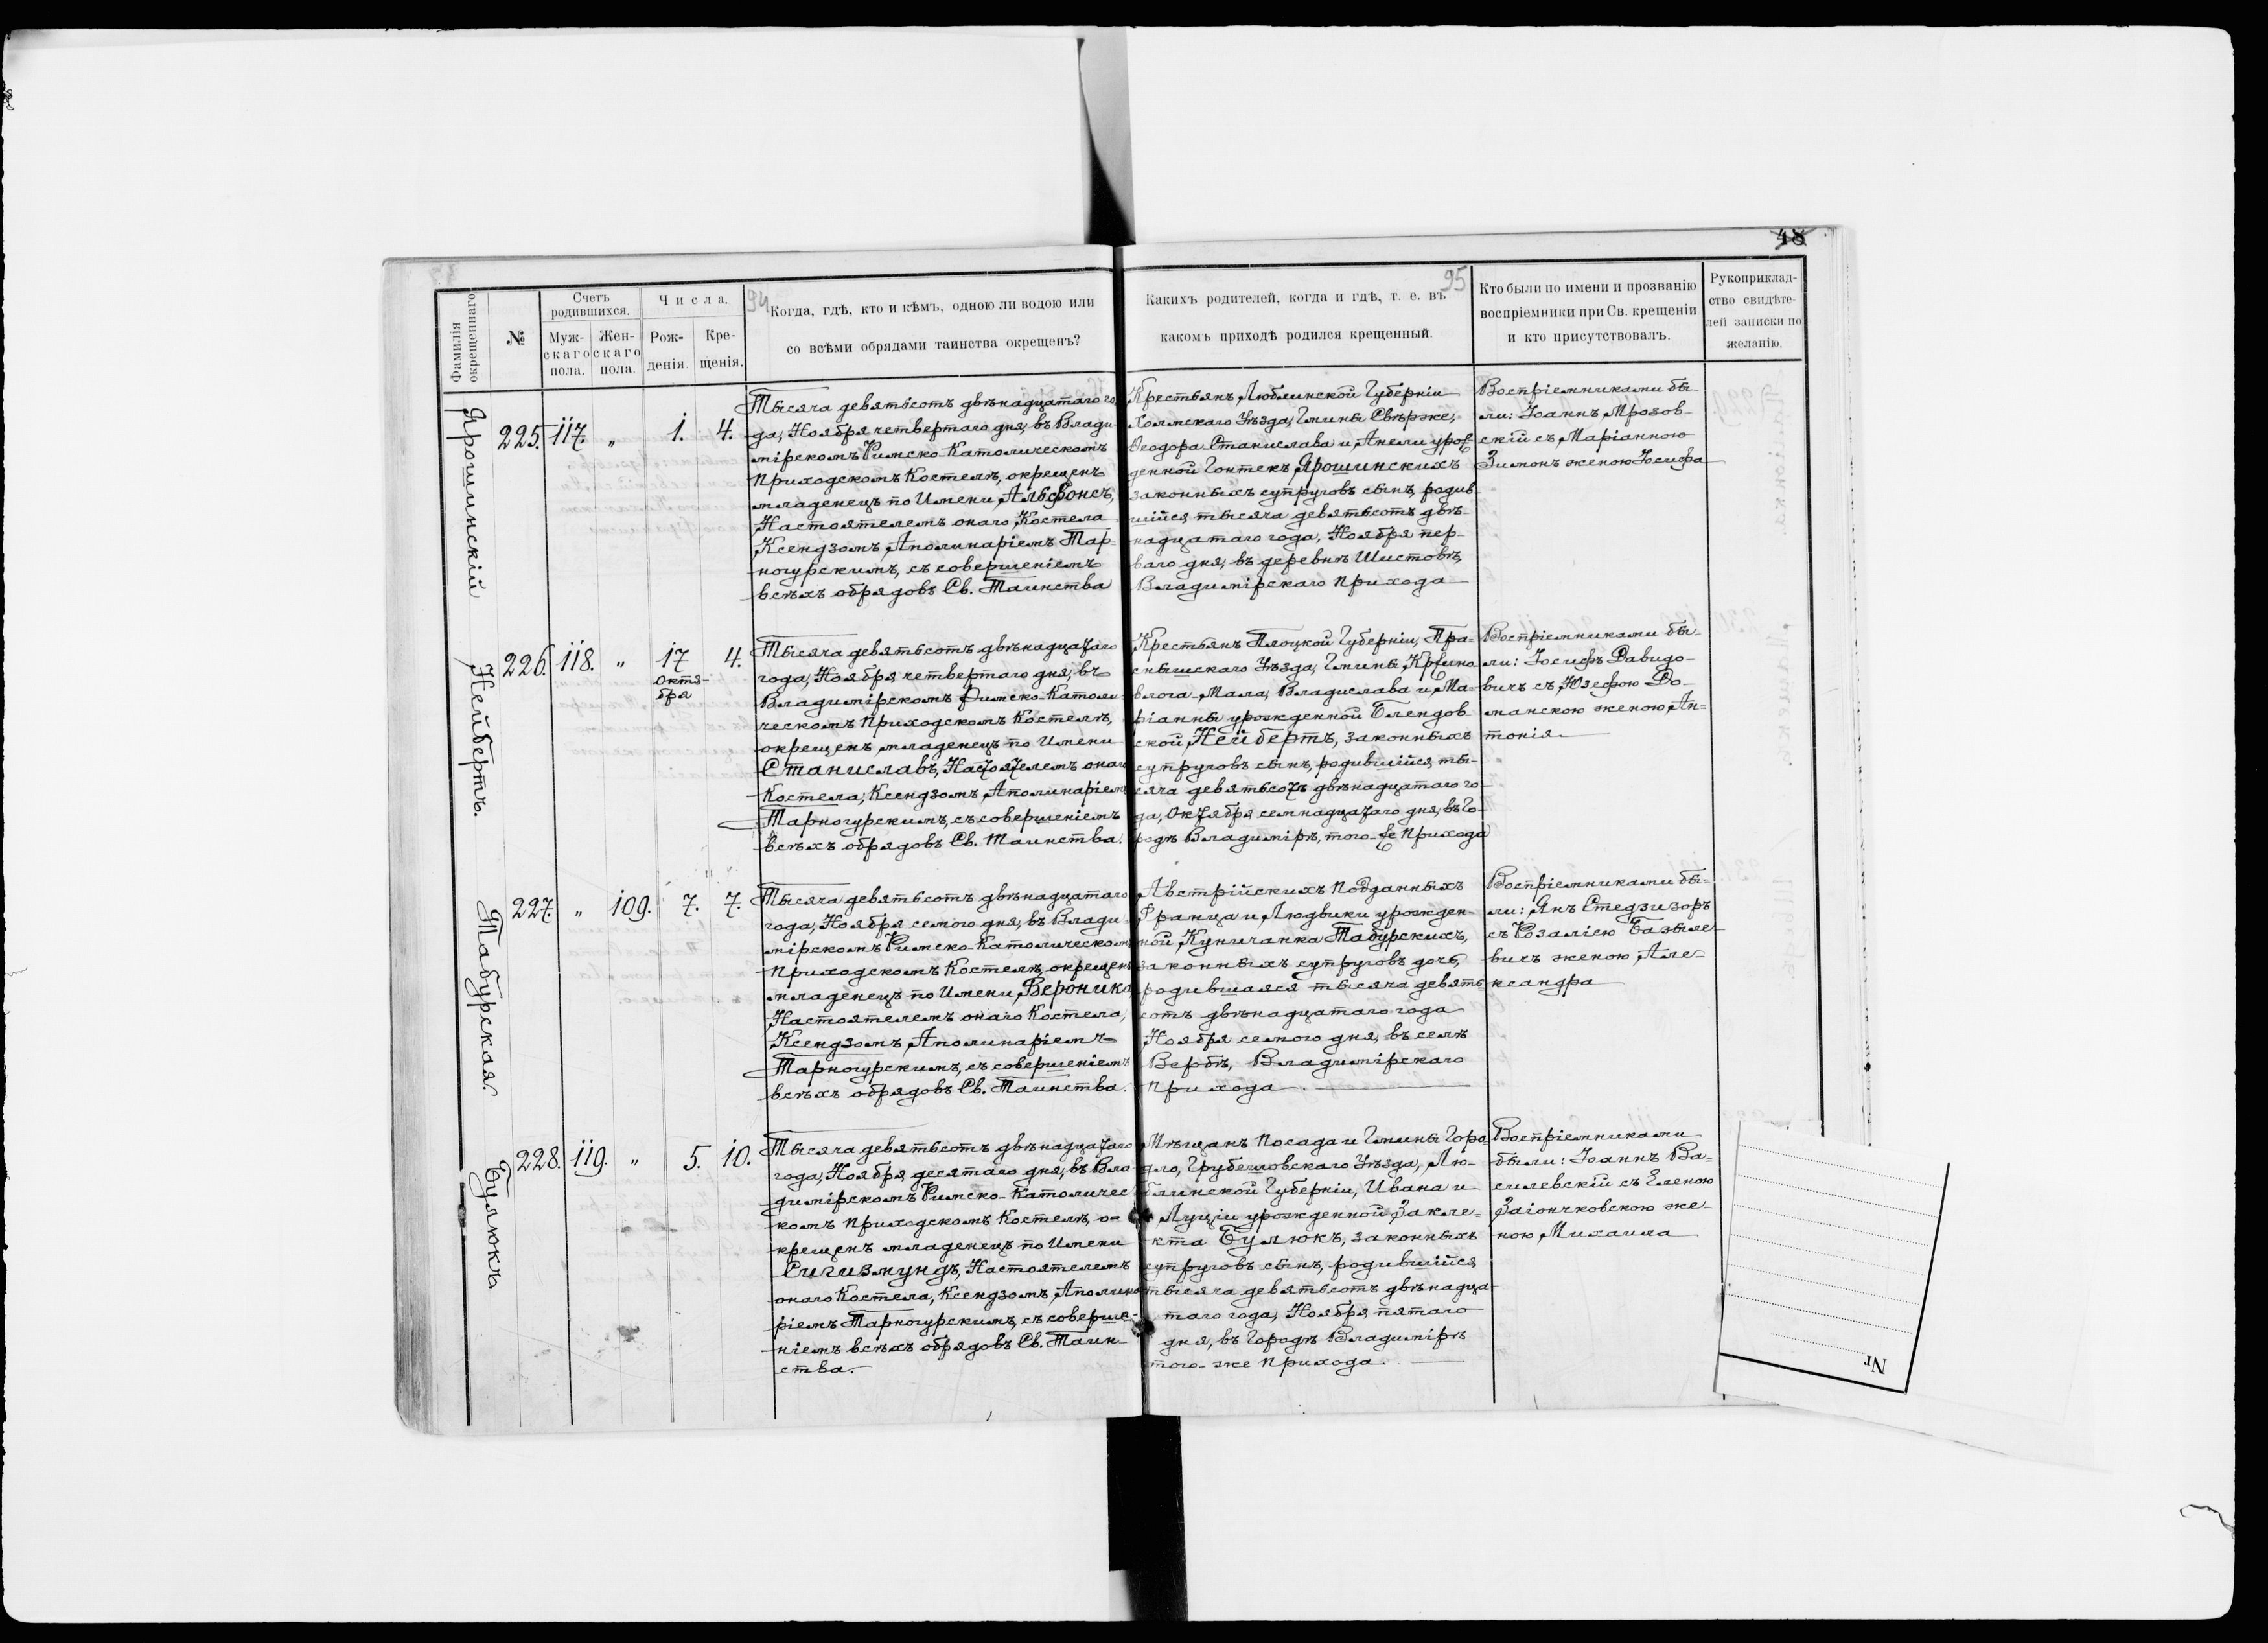 48
94
95
Фамилія окрещеннаго.
№
Счетъ родившихся.
Муж-
скаго
пола.
Жен-
скаго
пола.
Числа.
Рож-
денія.
Кре-
щенія.
Когда, гдѣ, кто и кѣмъ, одною ли водою или
со всѣми обрядами таинства окрещенъ?
Какихъ родителей, когда и гдѣ, т. е. въ
какомъ приходѣ родился крещенный.
Кто были по имени и прозванію
воспріемники при Св. крещеніи
и кто присутствовалъ.
Рукоприклад-
ство свидѣте-
лей записки по
желанію.
Ярошинскій
225. 117. „ 1. 4.
Тысяча девятьсотъ двѣнадцатаго го-
да, Ноября четвертаго дня, въ Влади-
мірскомъ Римско-Католическомъ
Приходскомъ Костелѣ, окрещенъ
младенецъ по Имени Альфонсъ,
Настоятелемъ онаго Костела
Ксендзомъ Аполинаріемъ Тар-
ногурскимъ, съ совершеніемъ
всѣхъ обрядовъ Св. Таинства
Крестьянъ Люблинской Губерніи
Холмскаго Уѣзда, Гмины Свѣрже,
Ѳеодора-Станислава и Анели урож
денной Гонтекъ Ярошинскихъ
законныхъ супруговъ сынъ, родив-
шійся тысяча девятьсотъ двѣ-
надцатаго года, Ноября пер-
ваго дня, въ деревнѣ Шистовѣ,
Владимірскаго Прихода
Воспріемниками бы-
ли: Іоаннъ Мрозов-
скій съ Маріанною
Зимонъ женою Іосифа
Нейбертъ.
226. 118. „ 17 Октя-
бря 4.
Тысяча девятьсотъ двѣнадцатаго
года, Ноября четвертаго дня, въ
Владимірскомъ Римско-Католи-
ческомъ Приходскомъ Костелѣ,
окрещенъ младенецъ по Имени
Станиславъ, Настоятелемъ онаго
Костела, Ксендзомъ Аполинаріемъ
Тарногурскимъ, съ совершеніемъ
всѣхъ обрядовъ Св. Таинства.
Крестьянъ Плоцкой Губерніи, Пра-
снышскаго Уѣзда, Гмины Кржино
влога-Мала, Владислава и Ма-
ріанны урожденной Блендов
ской Нейбертъ, законныхъ
супруговъ сынъ, родившійся ты-
сяча девятьсотъ двѣнадцатаго го-
да, Октября семнадцатаго дня, въ Го-
родѣ Владимірѣ, того-же Прихода
Воспріемниками бы-
ли: Іосифъ Давидо-
вичъ съ Юзефою До-
манскою женою Ан-
тонія
Табурская.
227. „ 109. 7. 7.
Тысяча девятьсотъ двѣнадцатаго
года, Ноября семого дня, въ Влади
мірскомъ Римско-Католическомъ
Приходскомъ Костелѣ, окрещенъ
младенецъ по Имени, Вероника,
Настоятелемъ онаго Костела,
Ксендзомъ Аполинаріемъ
Тарногурскимъ, съ совершеніемъ
всѣхъ обрядовъ Св. Таинства.
Австрійскихъ Подданныхъ
Франца и Людвики урожден-
ной Куничанка Табурскихъ,
законныхъ супруговъ дочь,
родившаяся тысяча девять-
сотъ двѣнадцатаго года
Ноября семого дня, въ селѣ
Вербѣ, Владимірскаго
Прихода.
Воспріемниками бы-
ли: Янъ Стедзизоръ
съ Розаліею Базыле-
вичъ женою Але-
ксандра
Булюкъ
228. 119. „ 5. 10.
Тысяча девятьсотъ двѣнадцатаго
года, Ноября десятаго дня, въ Вла-
димірскомъ Римско-Католичес
комъ Приходскомъ Костелѣ, о-
крещенъ младенецъ по Имени
Сигизмундъ, Настоятелемъ
онаго Костела, Ксендзомъ Аполина
ріемъ Тарногурскимъ, съ соверше-
ніемъ всѣхъ обрядовъ Св. Таин-
ства.
Мѣщанъ Посада и Гмины Горо-
дло, Грубешовскаго Уѣзда, Лю-
блинской Губерніи, Ивана и
Луціи урожденной Закле-
кта Булюкъ, законныхъ
супруговъ сынъ, родившійся
тысяча девятьсотъ двѣнадца-
таго года, Ноября пятаго
дня, въ Городѣ Владимірѣ
того-же Прихода.
Воспріемниками
были: Іоаннъ Ва-
силевскій съ Еленою
Заіончковскою же-
ною Михаила
Nr